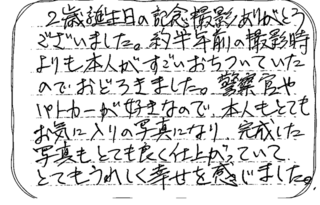 2歳誕生日の記念撮影ありがとう
ございました。約半年前の撮影時
よりも本人がすごいおちついていた
のでおどろきました。警察官や
パトカーが好きなので、本人もとても
お気に入りの写真になり、完成した
写真もとても良く仕上がっていて
とてもうれしく幸せを感じました。